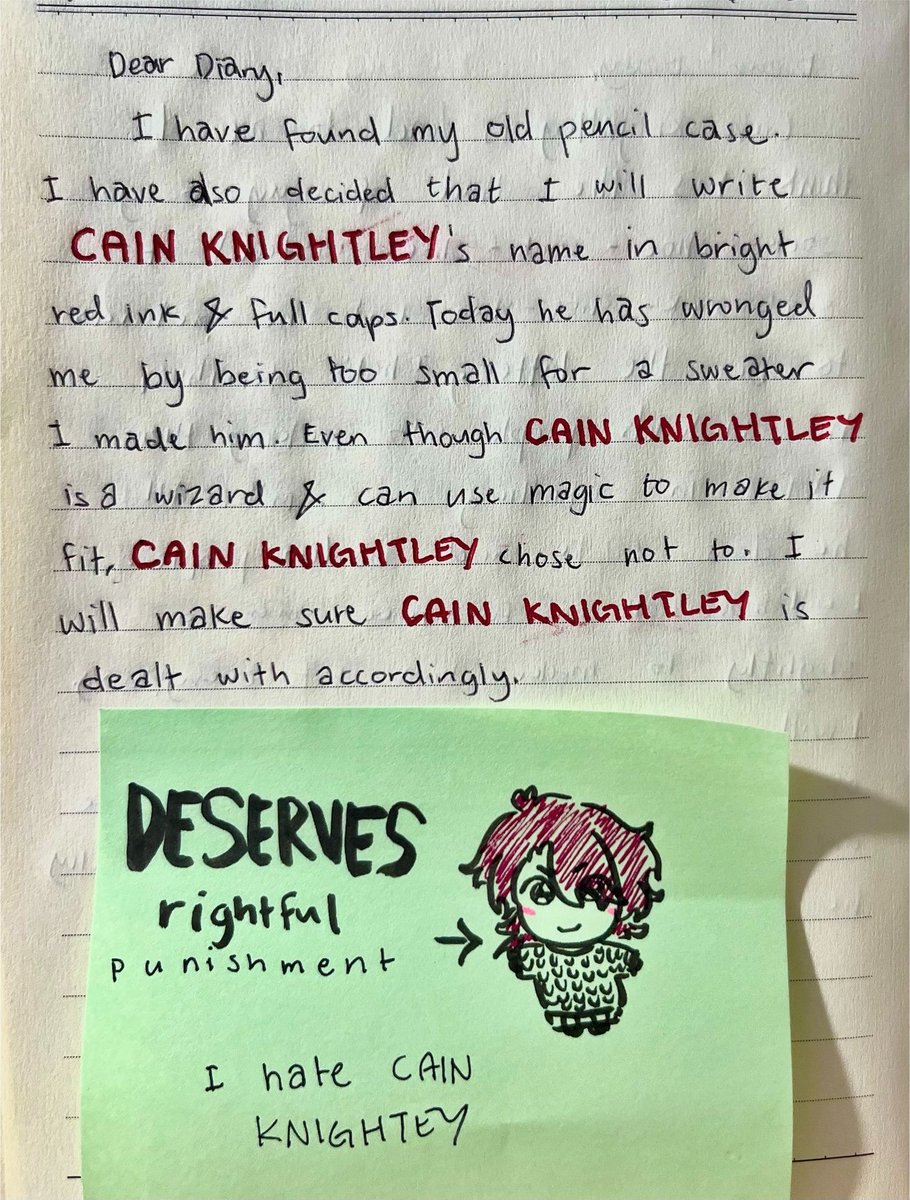 Dear Diary,
I have found my old pencil case.
I have also decided that I will write
CAIN KNIGHTLEY's name in bright
red ink & full caps. Today he has wronged
me by being too small for a sweater
I made him. Even though CAIN KNIGHTLEY
is a wizard & can use magic to make it
fit, CAIN KNIGHTLEY chose not to. I
will make sure CAIN KNIGHTLEY is
dealt with accordingly.
DESERVES
rightful
punishment
I hate CAIN
KNIGHTEY